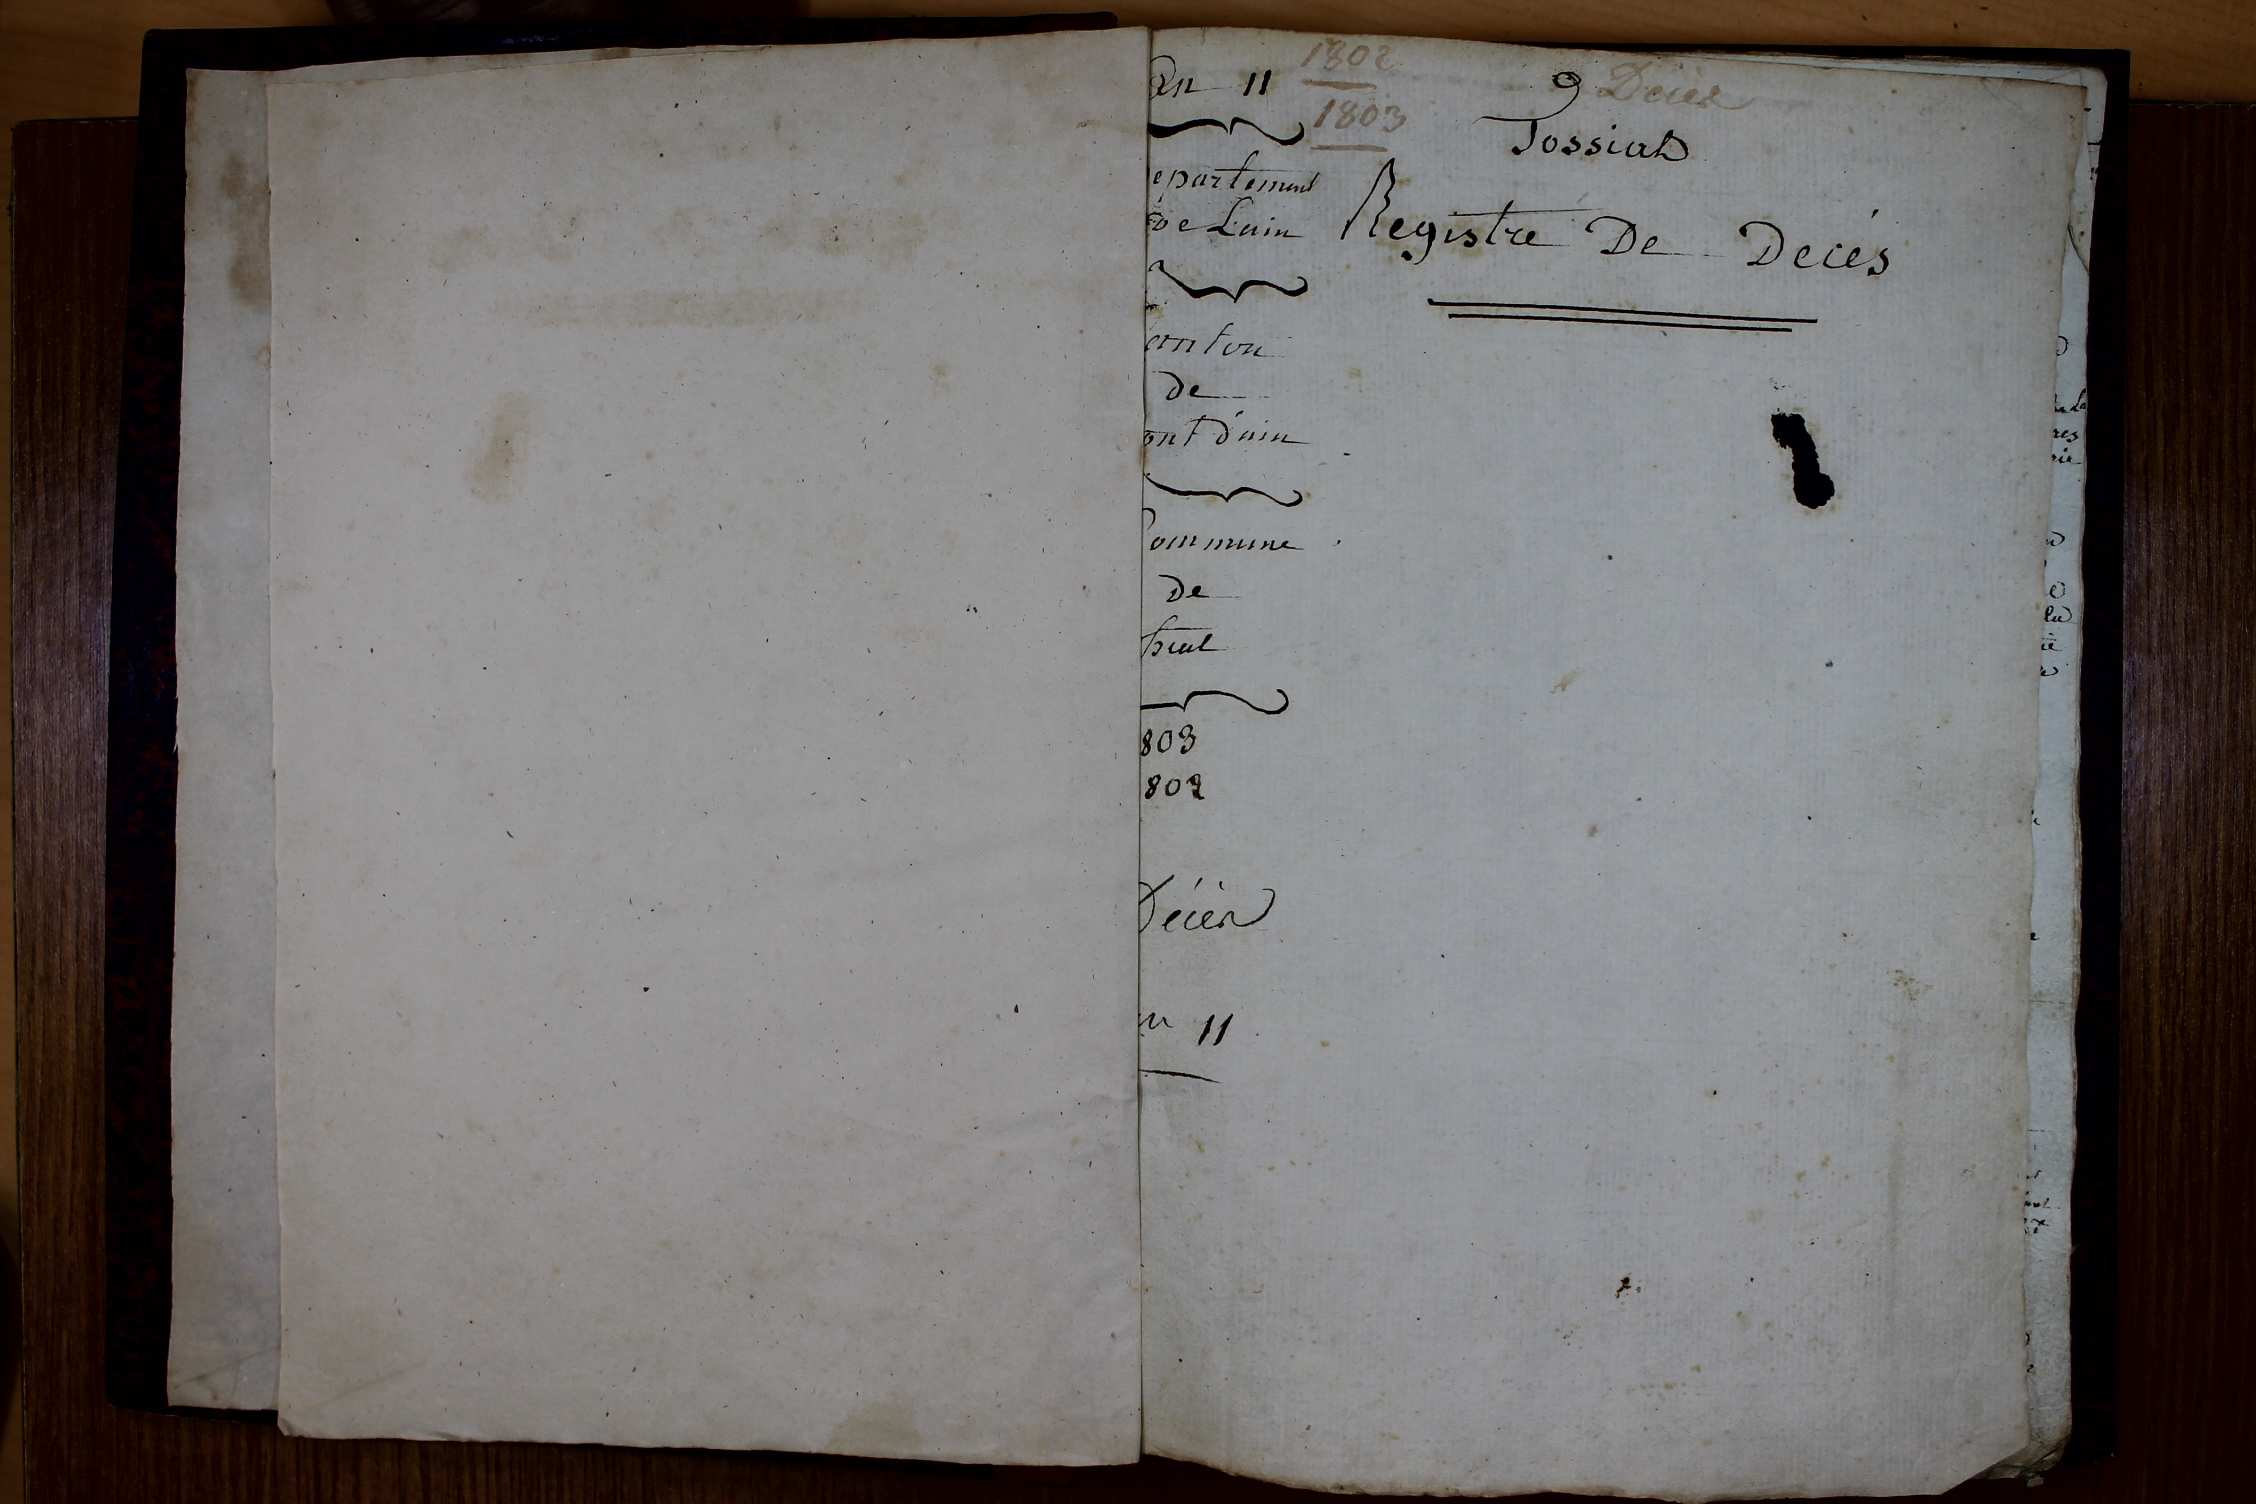 an 11
1802
1803
9 Decès
Jossiat
epartement
De Lain
Registre De Decés
anton
de
ont d'ain
ommune
De
803
802
Décès
11